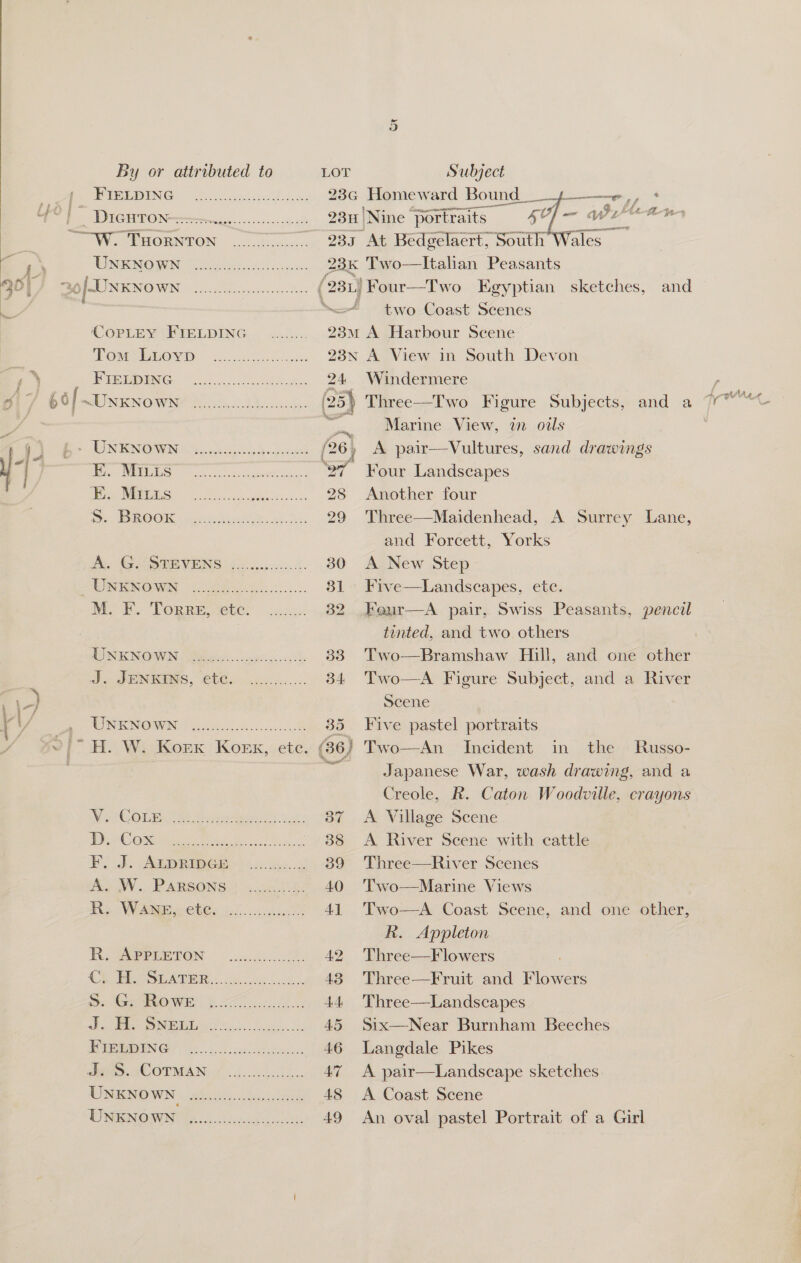 5
By or attributed to LOT Subject
FIELDING ........ 23G Homeward Bound
DIGHTON ........ 23H Nine portraits
W. THORNTON ........ 23J At Bedgelaert, South Wales
UNKNOWN ........ 23K Two—Italian Peasants
30/- UNKNOWN ........ 23L Four—Two Egyptian sketches, and
two Coast Scenes
COPLEY FIELDING ........ 23M A Harbour Scene
TOM LLOYD ........ 23N A View in South Devon
FIELDING ........ 24 Windermere
60/- UNKNOWN ........ 25 Three—Two Figure Subjects, and a
Marine View, in oils
UNKNOWN ........ 26 A pair—Vultures, sand drawings
E. MILLS ........ 27 Four Landscapes
E. MILLS ........ 28 Another four
S. BROOK ........ 29 Three—Maidenhead, A Surrey Lane,
and Forcett, Yorks
A. G. STEVENS ........ 30 A New Step
UNKNOWN ........ 31 Five—Landscapes, etc.
M. F. TORRE, etc. ........ 32 Four—A pair, Swiss Peasants, pencil
tinted, and two others
UNKNOWN ........ 33 Two—Bramshaw Hill, and one other
J. JENKINS, etc. ........ 34 Two—A Figure Subject, and a River
Scene
UNKNOWN ........ 35 Five pastel portraits
H. W. KOEK KOEK, etc. 36 Two—An Incident in the Russo-
Japanese War, wash drawing, and a
Creole, R. Caton Woodville, crayons
V. COLE ........ 37 A Village Scene
D. COX ........ 38 A River Scene with cattle
F. J. ALDRIDGE ........ 39 Three—River Scenes
A. W. PARSONS ........ 40 Two—Marine Views
R. WANE, etc. ........ 41 Two—A Coast Scene, and one other,
R. Appleton
R. APPLETON ........ 42 Three—Flowers
C. H. SLATER ........ 43 Three—Fruit and Flowers
S. G. ROWE ........ 44 Three—Landscapes
J. H. SNELL ........ 45 Six—Near Burnham Beeches
FIELDING ........ 46 Langdale Pikes
J. S. COTMAN ........ 47 A pair—Landscape sketches
UNKNOWN ........ 48 A Coast Scene
UNKNOWN ........ 49 An oval pastel Portrait of a Girl